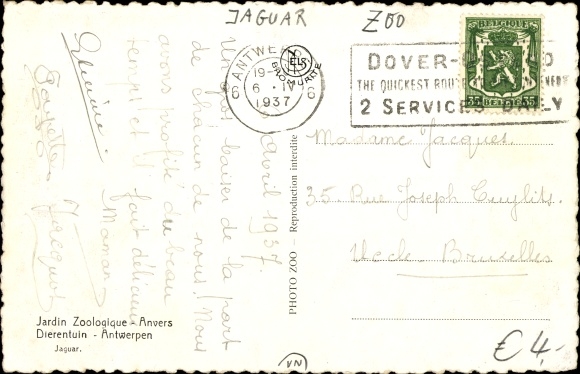 JAGUAR ZOO
BELGIQUE
35 BELGIE 35
ANTWERPEN
19-
6 6 · IV 6
1937
DOVER-
THE QUICKEST ROUTE
2 SERVICES DAILY
Avril 1937.
Un gros baiser de la part
de chacun de nous. Nous
avons profité du beau
temps et fait délicieux
Maman
Jacques
Madame Jacques
35 Rue Joseph Cuylits.
Uccle Bruxelles
PHOTO ZOO - Reproduction interdite
Jardin Zoologique - Anvers
Dierentuin - Antwerpen
Jaguar.
VN
€ 4,-